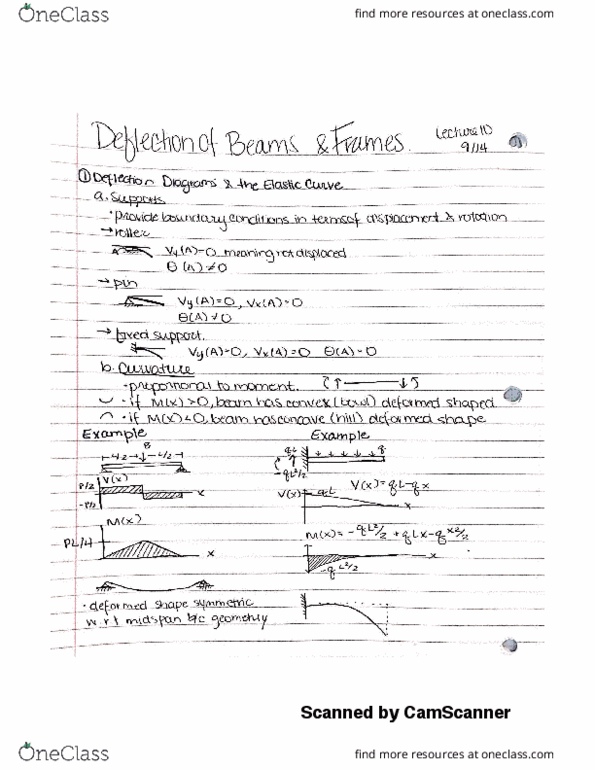 OneClass
find more resources at oneclass.com
Deflection of Beams & Frames.
Lecture 10
9/14
① Deflection Diagrams & the Elastic Curve
a. Supports
• provide boundary conditions in terms of displacement & rotation
→ roller
A
Vy(A)=0 meaning not displaced
θ(A)≠0
→ pin
Vy(A)=0, Vx(A)=0
θ(A)≠0
→ fixed support.
Vy(A)=0, Vx(A)=0 θ(A)=0
b. Curvature
• proportional to moment.
• if M(x)>0, beam has convex (bowl) deformed shaped
• if M(x)<0, beam has concave (hill) deformed shape
Example
L/2
L/2
P/2
V(x)
-P/2
x
M(x)
PL/4
x
• deformed shape symmetric
w.r.t midspan b/c geometry
Example
qL
q
-qL²/2
V(x)
qL
V(x)=qL-qx
x
M(x)=-qL²/2+qLx-qx²/2
x
-qL²/2
Scanned by CamScanner
OneClass
find more resources at oneclass.com